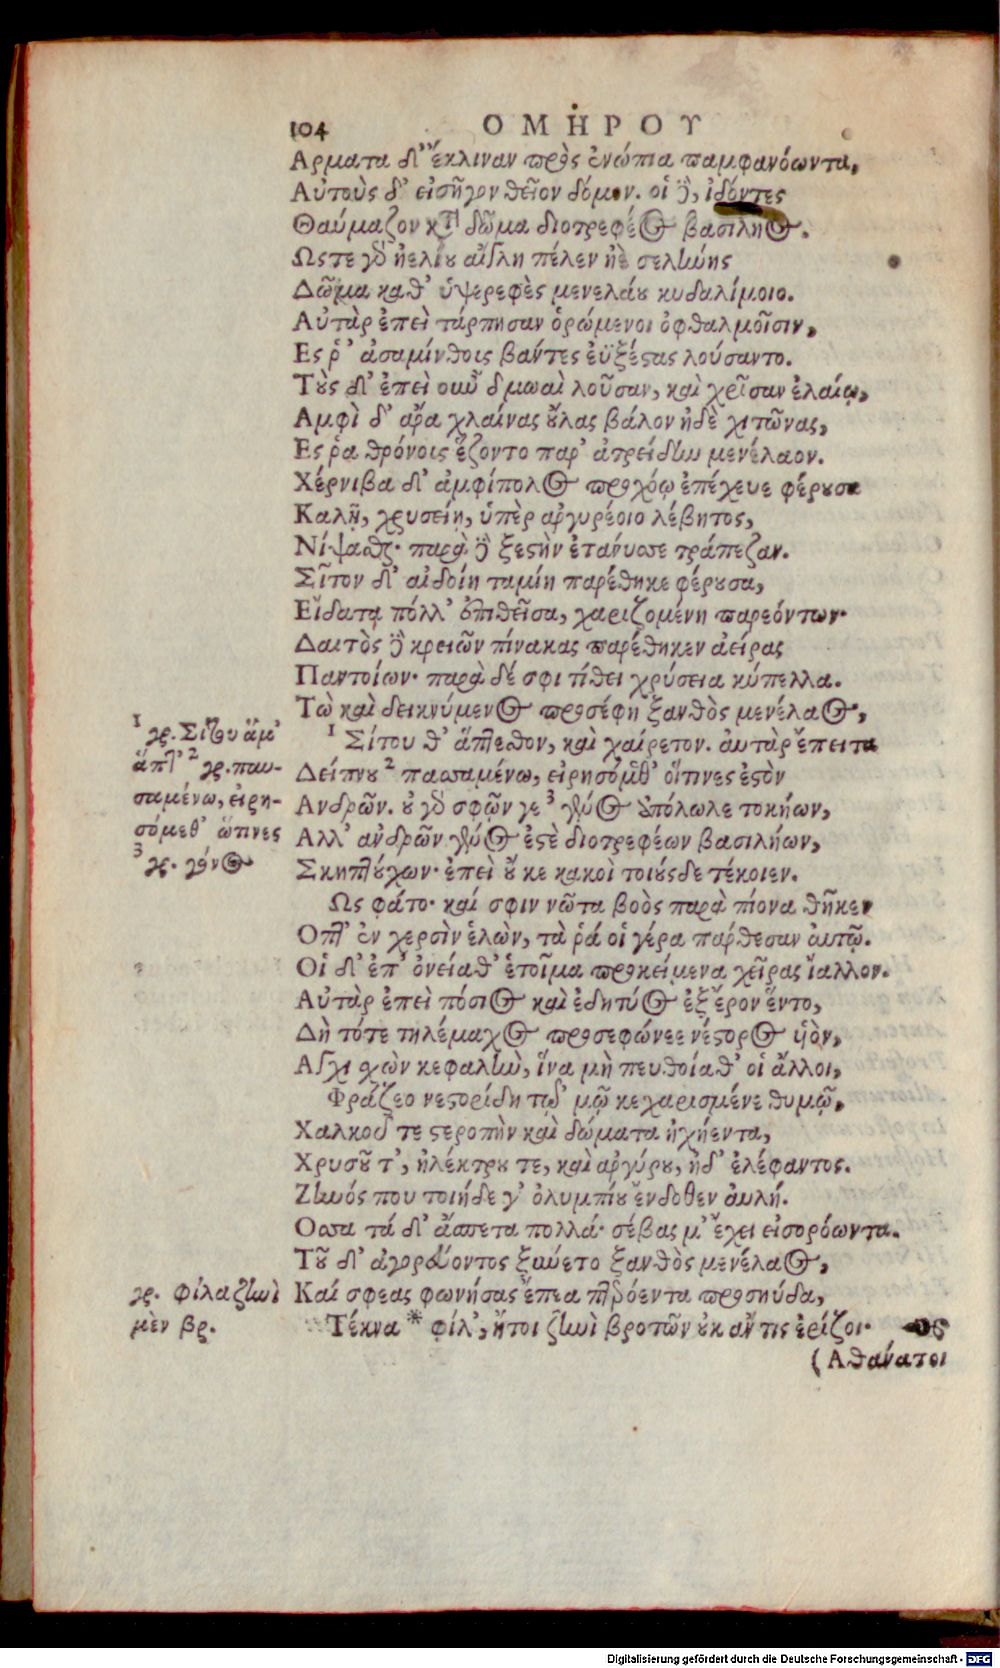 104 ΟΜΗΡΟΥ
Αρματα δ' ἔκλιναν πρὸς ἐνώπια παμφανόωντα,
Αὐτοὺς δ' εἰσῆγον θεῖον δόμον. οἱ δὲ, ἰδόντες
Θαύμαζον κατὰ δῶμα διοτρεφέος βασιλῆος.
Ωστε γὸ ἠελίου αἴγλη πέλεν ἠὲ σελήνης
Δῶμα καθ' ὑψερεφὲς μενελάου κυδαλίμοιο.
Αὐτὰρ ἐπεὶ τάρπησαν ὁρώμενοι ὀφθαλμοῖσιν,
Ες ῥ' ἀσαμίνθοις βάντες ἐϋξέςας λούσαντο.
Τοὺς δ' ἐπεὶ οιιῶ δμωαὶ λοῦσαν, καὶ χρῖσαν ἐλαίῳ,
Αμφὶ δ' ἄρα χλαίνας οὔλας βάλον ἠδὲ χιτῶνας,
Ες ῥα θρόνοις ἕζοντο παρ' ἀτρείδην μενέλαον.
Χέρνιβα δ' ἀμφίπολος προχόῳ ἐπέχευε φέρουσα
Καλῇ, χρυσείῃ, ὑπὲρ ἀργυρέοιο λέβητος,
Νίψασθαι· παρὰ δὲ ξεςὴν ἐτάνυσσε τράπεζαν.
Σῖτον δ' αἰδοίη ταμίη παρέθηκε φέρουσα,
Εἴδατα πόλλ' ἐπιθεῖσα, χαριζομένη παρεόντων·
Δαιτὸς δὲ κρειῶν πίνακας παρέθηκεν ἀείρας
Παντοίων· παρὰ δέ σφι τίθει χρύσεια κύπελλα.
Τὼ καὶ δεικνύμενος προσέφη ξανθὸς μενέλαος,
1 Σίτου θ' ἅπτεσθον, καὶ χαίρετον. αὐτὰρ ἔπειτα
Δείπνου 2 πασσαμένω, εἰρησόμεθ' οἵτινες ἐςὸν
Ανδρῶν. οὐ γὸ σφῶν γε 3 γένος ἀπόλωλε τοκήων,
Αλλ' ανδρῶν γένος ἐςὲ διοτρεφέων βασιλήων,
Σκηπτούχων· ἐπεὶ οὔ κε κακοὶ τοιούσδε τέκοιεν.
Ως φάτο· καί σφιν νῶτα βοὸς παρὰ πίονα θῆκεν
Οπτ' ἐν χερσὶν ἑλὼν, τὰ ῥά οἱ γέρα πάρθεσαν αὐτῷ.
Οἱ δ' ἐπ' ὀνείαθ' ἑτοῖμα προκείμενα χεῖρας ἴαλλον.
Αὐτὰρ ἐπεὶ πόσιος καὶ ἐδητύος ἐξ ἔρον ἕντο,
Δὴ τότε τηλέμαχος προσεφώνεε νέςορος υἱὸν,
Αγχι σχὼν κεφαλὴν, ἵνα μὴ πευθοίαθ' οἱ ἄλλοι,
Φράζεο νεςορίδη τῷδ' μῷ κεχαρισμένε θυμῷ,
Χαλκοῦ τε ςεροπὴν καὶ δώματα ἠχήεντα,
Χρυσοῦ τ', ἠλέκτρου τε, καὶ ἀργύρου, ἠδ' ἐλέφαντος.
Ζηνός που τοιήδε γ' ὀλυμπίου ἔνδοθεν αὐλή.
Οσσα τά δ' ἄσπετα πολλά· σέβας μ' ἔχει εἰσορόωντα.
Τοῦ δ' ἀγορεύοντος ξυνετο ξανθὸς μενέλαος,
Καί σφεας φωνήσας ἔπεα πτερόεντα προσηύδα,
Τέκνα * φίλ', ἤτοι ζηνὶ βροτῶν οὐκ ἄν τις ἐρίζοι·
(Αθάνατοι
1 γρ. Σίτου ἅμ'
ἅπτ' 2 γρ. παυ-
σαμένω, εἰρη-
σόμεθ' ὥτινες
3 γρ. γένος
γρ. φίλα ζηνὶ
μὲν βρ.
Digitalisierung gefördert durch die Deutsche Forschungsgemeinschaft - DFG